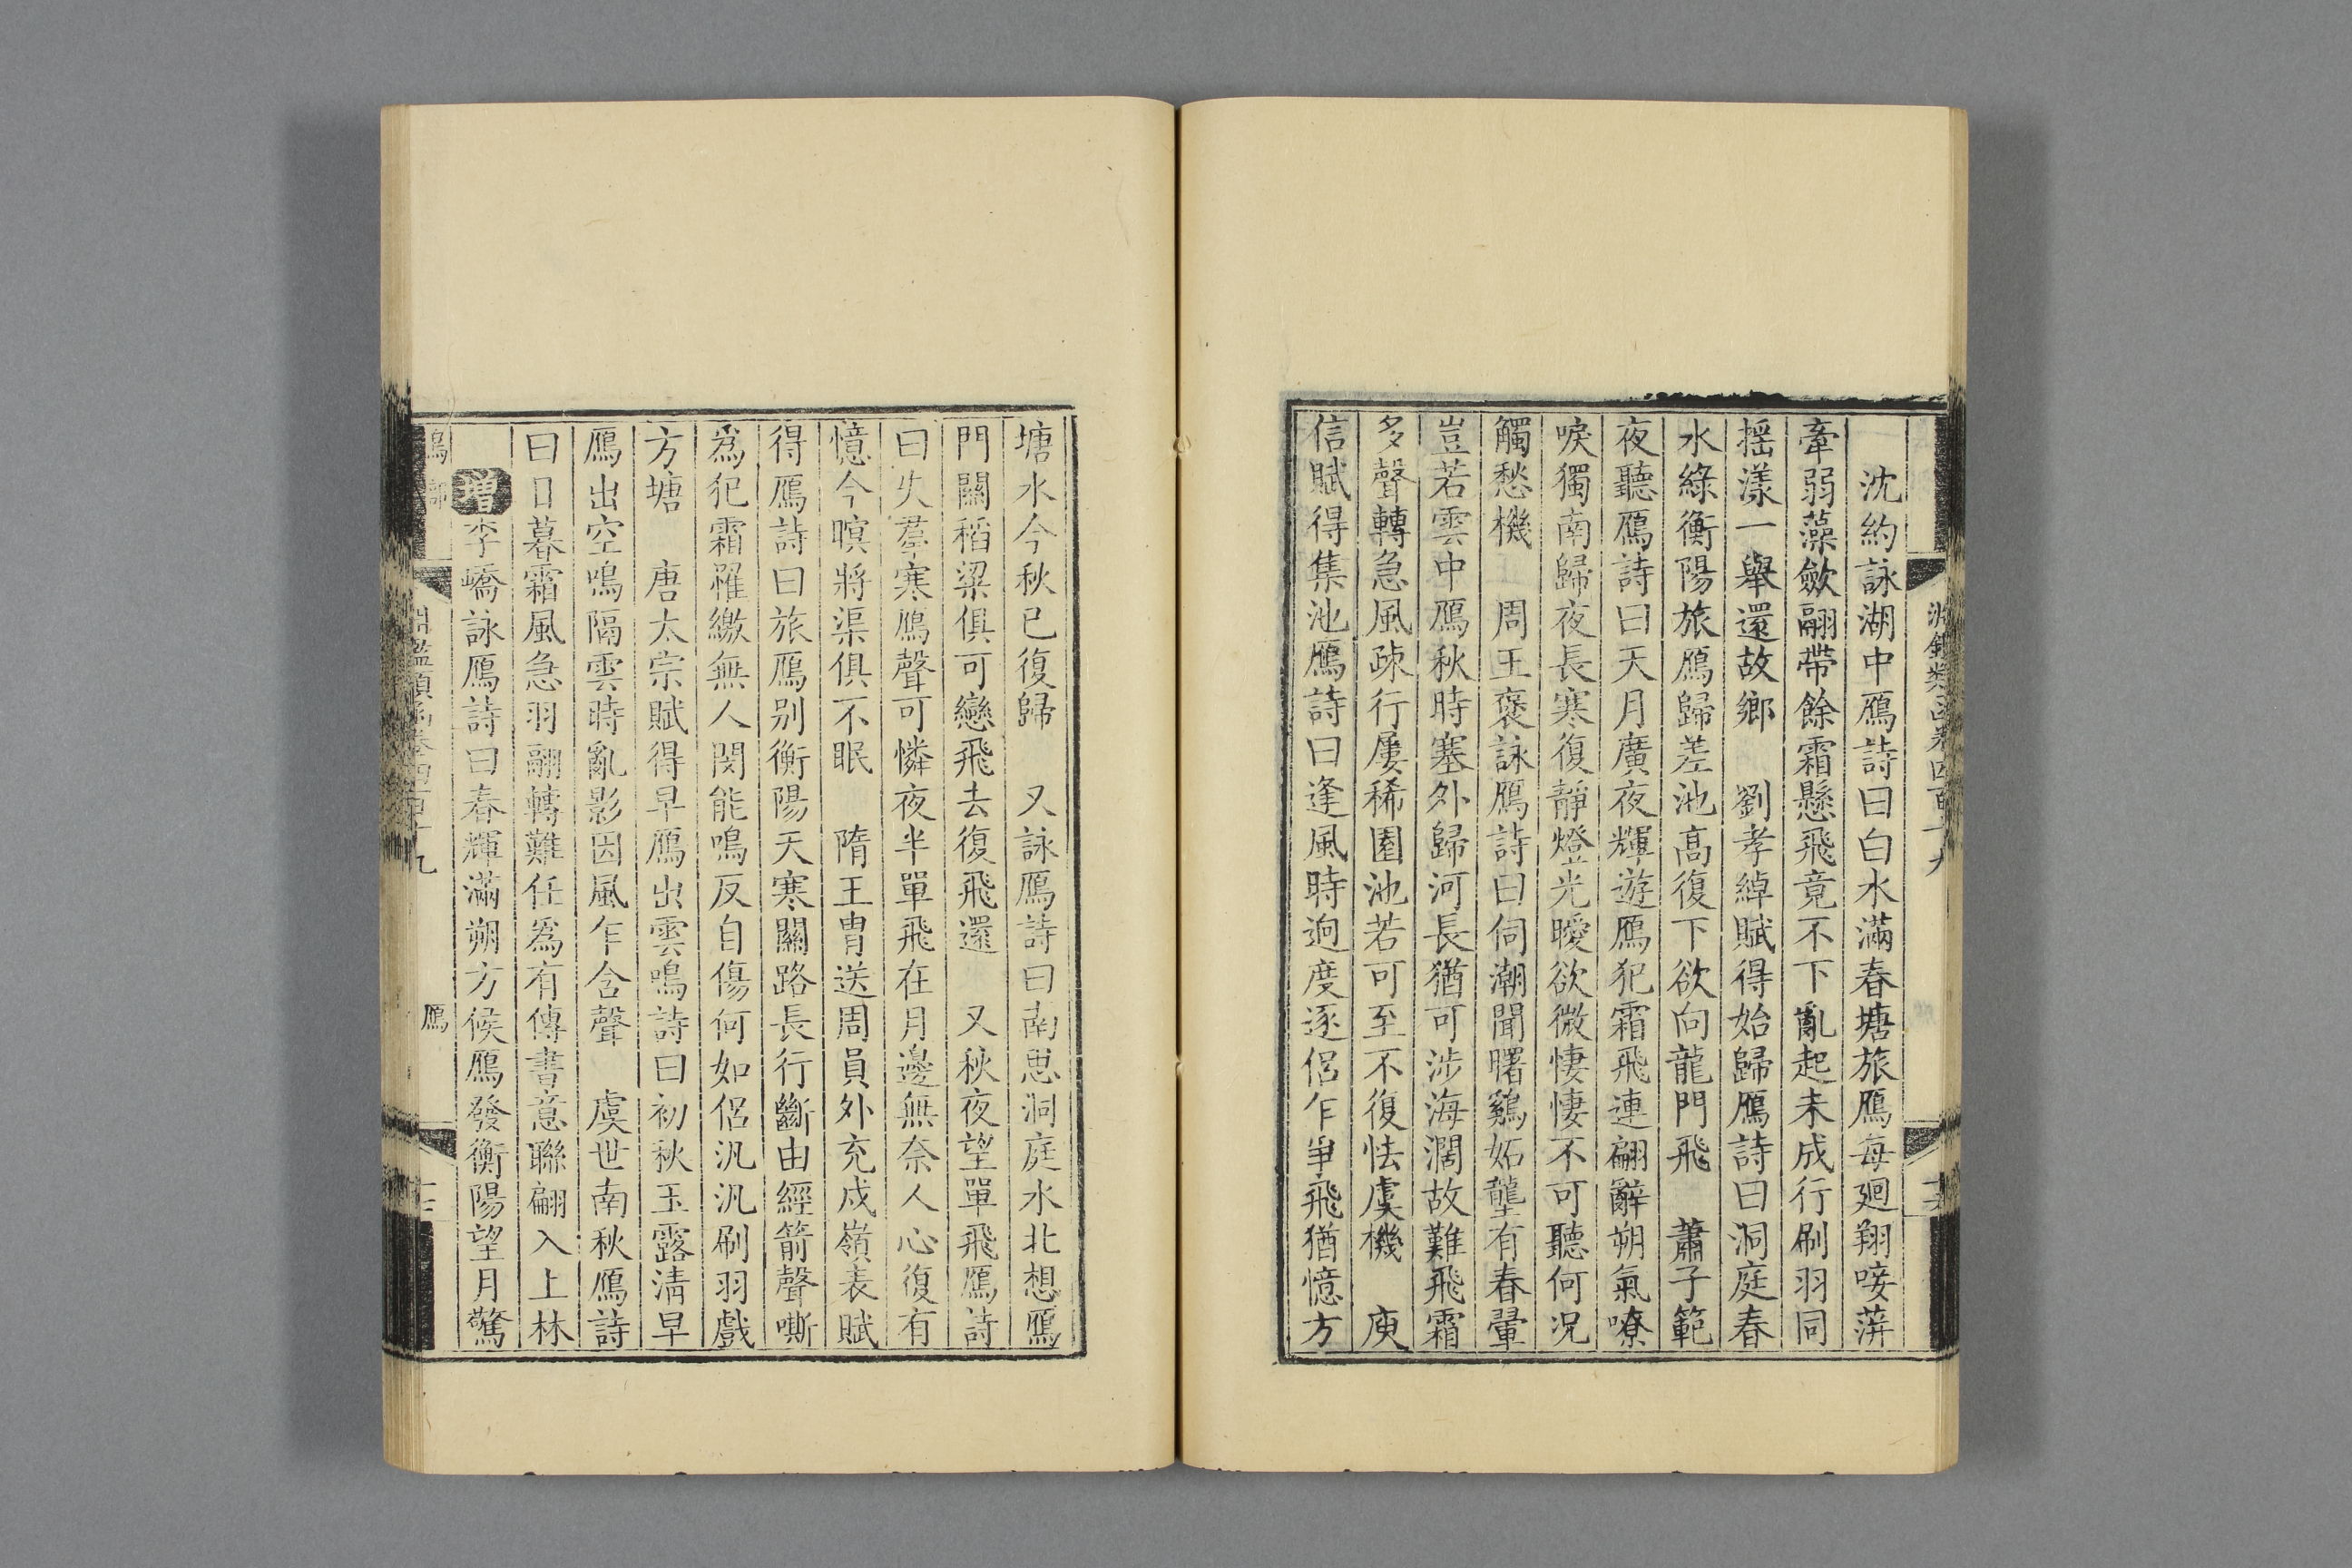 沈約詠湖中鴈詩曰白水滿春塘旅鴈每廻翔唼蓱
牽弱藻歛翮帶餘霜懸飛竟不下亂起未成行刷羽同
摇漾一舉還故鄉　劉孝綽賦得始歸鴈詩曰洞庭春
水綠衡陽旅鴈歸差池高復下欲向龍門飛　蕭子範
夜聽鴈詩曰天月廣夜輝遊鴈犯霜飛連翩辭朔氣嘹
唳獨南歸夜長寒復靜燈光曖欲微悽悽不可聽何况
觸愁機　周王褒詠鴈詩曰伺潮聞曙鷄妬壟有春翬
豈若雲中鴈秋時塞外歸河長猶可涉海濶故難飛霜
多聲轉急風疎行屢稀園池若可至不復怯虞機　庾
信賦得集池鴈詩曰逢風時迥度逐侣乍爭飛猶憶方
塘水今秋已復歸　又詠鴈詩曰南思洞庭水北想鴈
門關稻粱俱可戀飛去復飛還　又秋夜望單飛鴈詩
曰失羣寒鴈聲可憐夜半單飛在月邊無奈人心復有
憶今暝將渠俱不眠　隋王胄送周員外充戍嶺表賦
得鴈詩曰旅鴈别衡陽天寒關路長行斷由經箭聲嘶
爲犯霜罹繳無人閔能鳴反自傷何如侣汎汎刷羽戲
方塘　唐太宗賦得早鴈出雲鳴詩曰初秋玉露淸早
鴈出空鳴隔雲時亂影因風乍含聲　虞世南秋鴈詩
曰日暮霜風急羽翮轉難任爲有傳書意聯翩入上林
增李嶠詠鴈詩曰春輝滿朔方候鴈發衡陽望月驚
鳥部　淵鑑類函卷四百十九　鴈